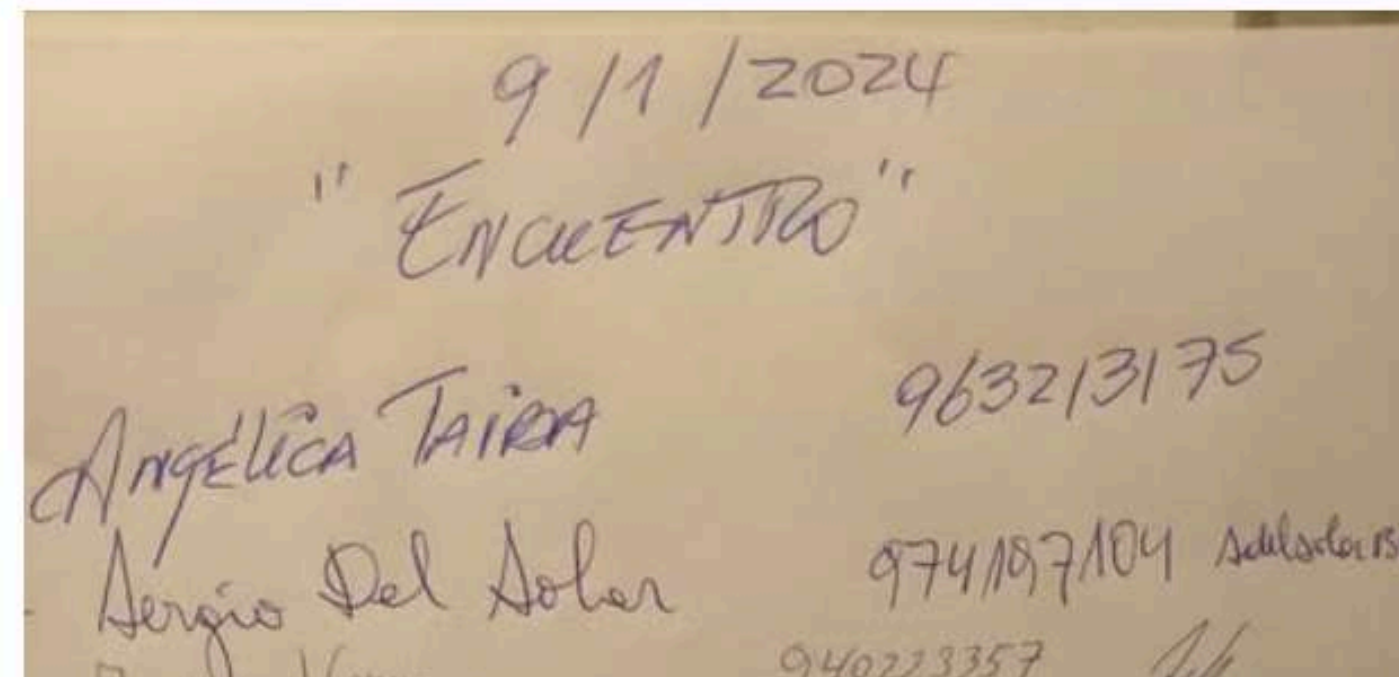 9/1/2024
"ENCUENTRO"
ANGÉLICA TAIRA 963213175
Sergio Del Solar 974197104
940223357